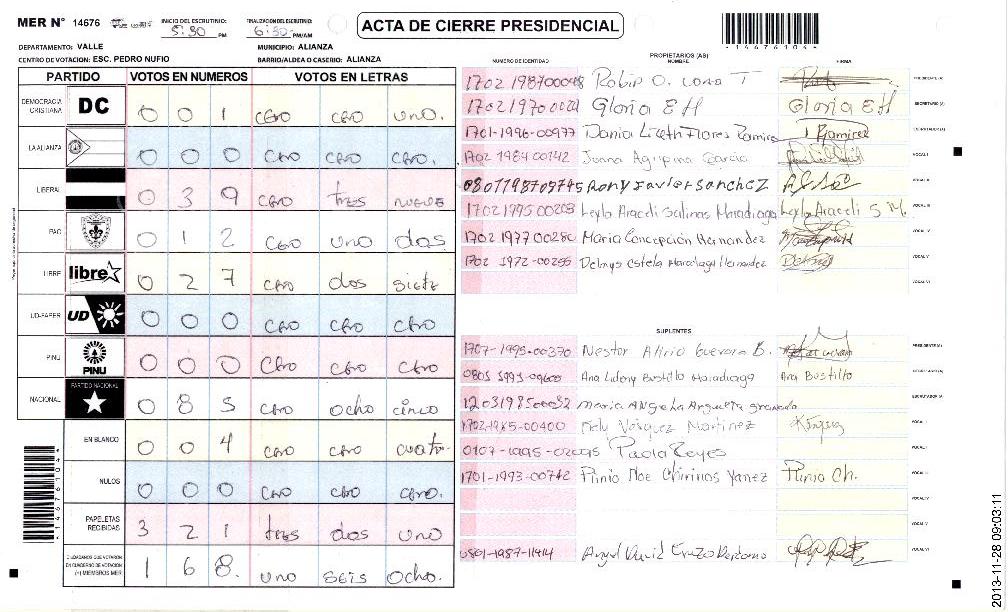 MER Nº 14676 INICIO DEL ESCRUTINIO: 5:30 PM FINALIZACIÓN DEL ESCRUTINIO: 6:30 PM/AM
ACTA DE CIERRE PRESIDENCIAL
*14676104*
DEPARTAMENTO: VALLE MUNICIPIO: ALIANZA
CENTRO DE VOTACION: ESC. PEDRO NUFIO BARRIO/ALDEA O CASERIO: ALIANZA
PARTIDO VOTOS EN NUMEROS VOTOS EN LETRAS
DEMOCRACIA CRISTIANA DC 0 0 1 cero cero uno.
LA ALIANZA 0 0 0 cero cero cero.
LIBERAL 0 3 9 cero tres nueve
PAC 0 1 2 cero uno dos
LIBRE libre 0 2 7 cero dos siete
UD-FAPER UD 0 0 0 cero cero cero
PINU PINU 0 0 0 cero cero cero
NACIONAL PARTIDO NACIONAL 0 8 5 cero ocho cinco
EN BLANCO 0 0 4 cero cero cuatro
NULOS 0 0 0 cero cero cero.
PAPELETAS RECIBIDAS 3 2 1 tres dos uno
CIUDADANOS QUE VOTARON EN CUADERNO DE VOTACION (+) MIEMBROS MER 1 6 8. uno seis ocho.
*14676104*
PROPIETARIOS (AS)
NUMERO DE IDENTIDAD NOMBRE FIRMA
Robin O. T PRESIDENTE (A)
Gloria E H Gloria E H SECRETARIO (A)
1701-1996-00977 Dania Lizeth Flores Ramirez Ramirez ESCRUTADOR (A)
1702 1984 00142 Juana Agripina Garcia VOCAL I
0801198709745 Rony Javier Sanchez VOCAL II
1702 1995 00203 Leyla Araceli Salinas Maradiaga Leyla Araceli S M. VOCAL III
1702 1977 00280 Maria Concepción Hernandez VOCAL IV
1702 1972-00255 Delmys Estela Maradiaga Hernandez Delmis VOCAL V
VOCAL VI
SUPLENTES
1707-1995-00370 Nestor Alirio Guevara B. PRESIDENTE (A)
Ana Lideny Bustillo Maradiaga Ana Bustillo SECRETARIO (A)
Maria Angela Argueta granado ESCRUTADOR (A)
1702-1985-00400 Vasquez Martinez VOCAL I
0107-1995-02095 Paola Reyes VOCAL II
1701-1993-00742 Plinio Noe Chirinos Yanez Plinio Ch. VOCAL III
VOCAL IV
VOCAL V
0501-1987-11414 Angel David Erazo Perdomo VOCAL VI
2013-11-28 09:03:11